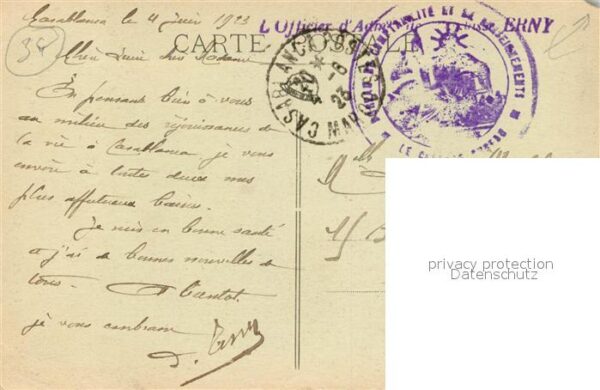 Casablanca le 4 juin 1923
L'Officier d'Ad ERNY
39
CARTE POSTALE
CASABLANCA
MAROC
23
COMPTABILITÉ ET DE RENSEIGNEMENTS
LE
Chère
En pensant bien à vous
au milieu des réjouissances de
la vie à Casablanca je vous
envoie à toutes deux mes
plus affectueux baisers.
Je suis en bonne santé
et j'ai de bonnes nouvelles de
tous. A bientôt.
je vous embrasse
D. Erny
M
M
privacy protection
Datenschutz